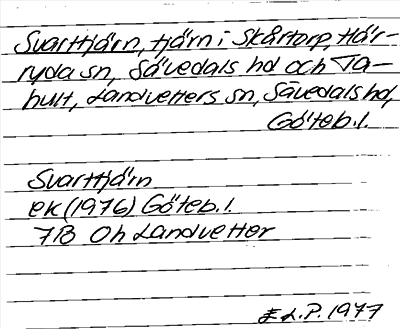 Svarttjärn, tjärn i Skårtorp, Här-
ryda sn, Sävedals hd och Ta-
hult, Landvetters sn, Sävedals hd,
Göteb. l.
Svarttjärn
ek (1976) Göteb. l.
7B 0h Landvetter
E L. P. 1977